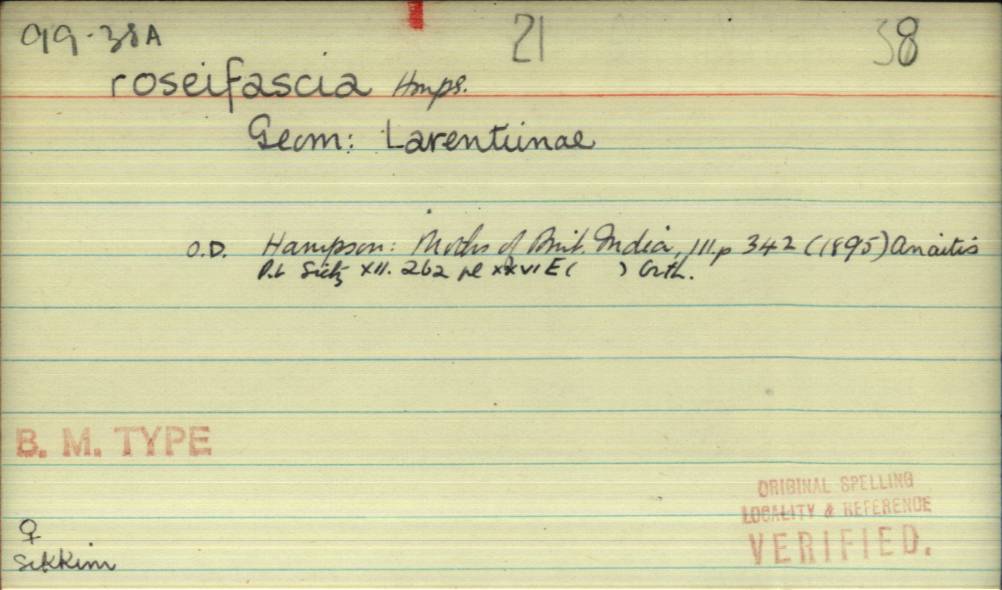 99-38A 21 38
roseifascia Hmps.
Geom: Larentiinae
O.D. Hampson: Moths of Brit. India, III. p 342 (1895) Anaitis
P.L Seitz XII. 262 pl XXVI E ( ) Orth.
B. M. TYPE
ORIGINAL SPELLING
LOCALITY & REFERENCE
VERIFIED.
♀
Sikkim